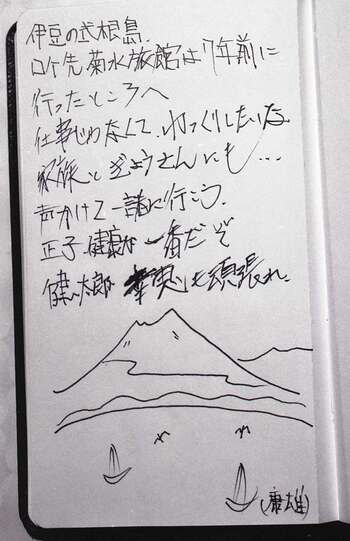 伊豆の式根島.
ロケ先 菊水旅館は7年前に
行ったところへ
仕事じゃなくて、ゆっくりしたいな
家族とぎょうさんにも…
声かけて一諸に行こう.
正子 健康が一番だぞ
健太郎 も頑張れ.
(康雄)